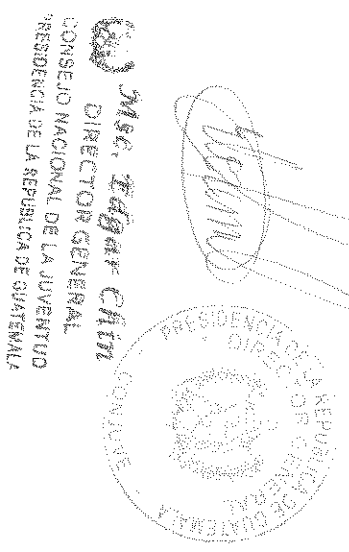 Msc. Edgar Chim
DIRECTOR GENERAL
CONSEJO NACIONAL DE LA JUVENTUD
PRESIDENCIA DE LA REPUBLICA DE GUATEMALA
PRESIDENCIA DE LA REPUBLICA DE GUATEMALA
DIRECTOR GENERAL
- CONJUVE -